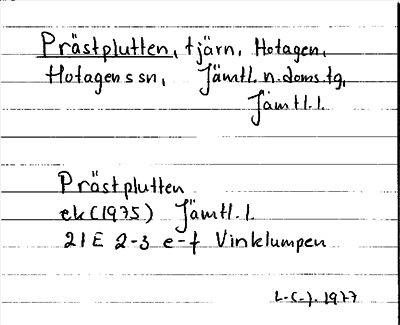 Prästplutten, tjärn, Hotagen,
Hotagens sn, Jämtl. n. doms. tg,
Jämtl. l.
Prästplutten
ek (1975) Jämtl. l.
21E 2-3 e-f Vinklumpen
L-C-J. 1977